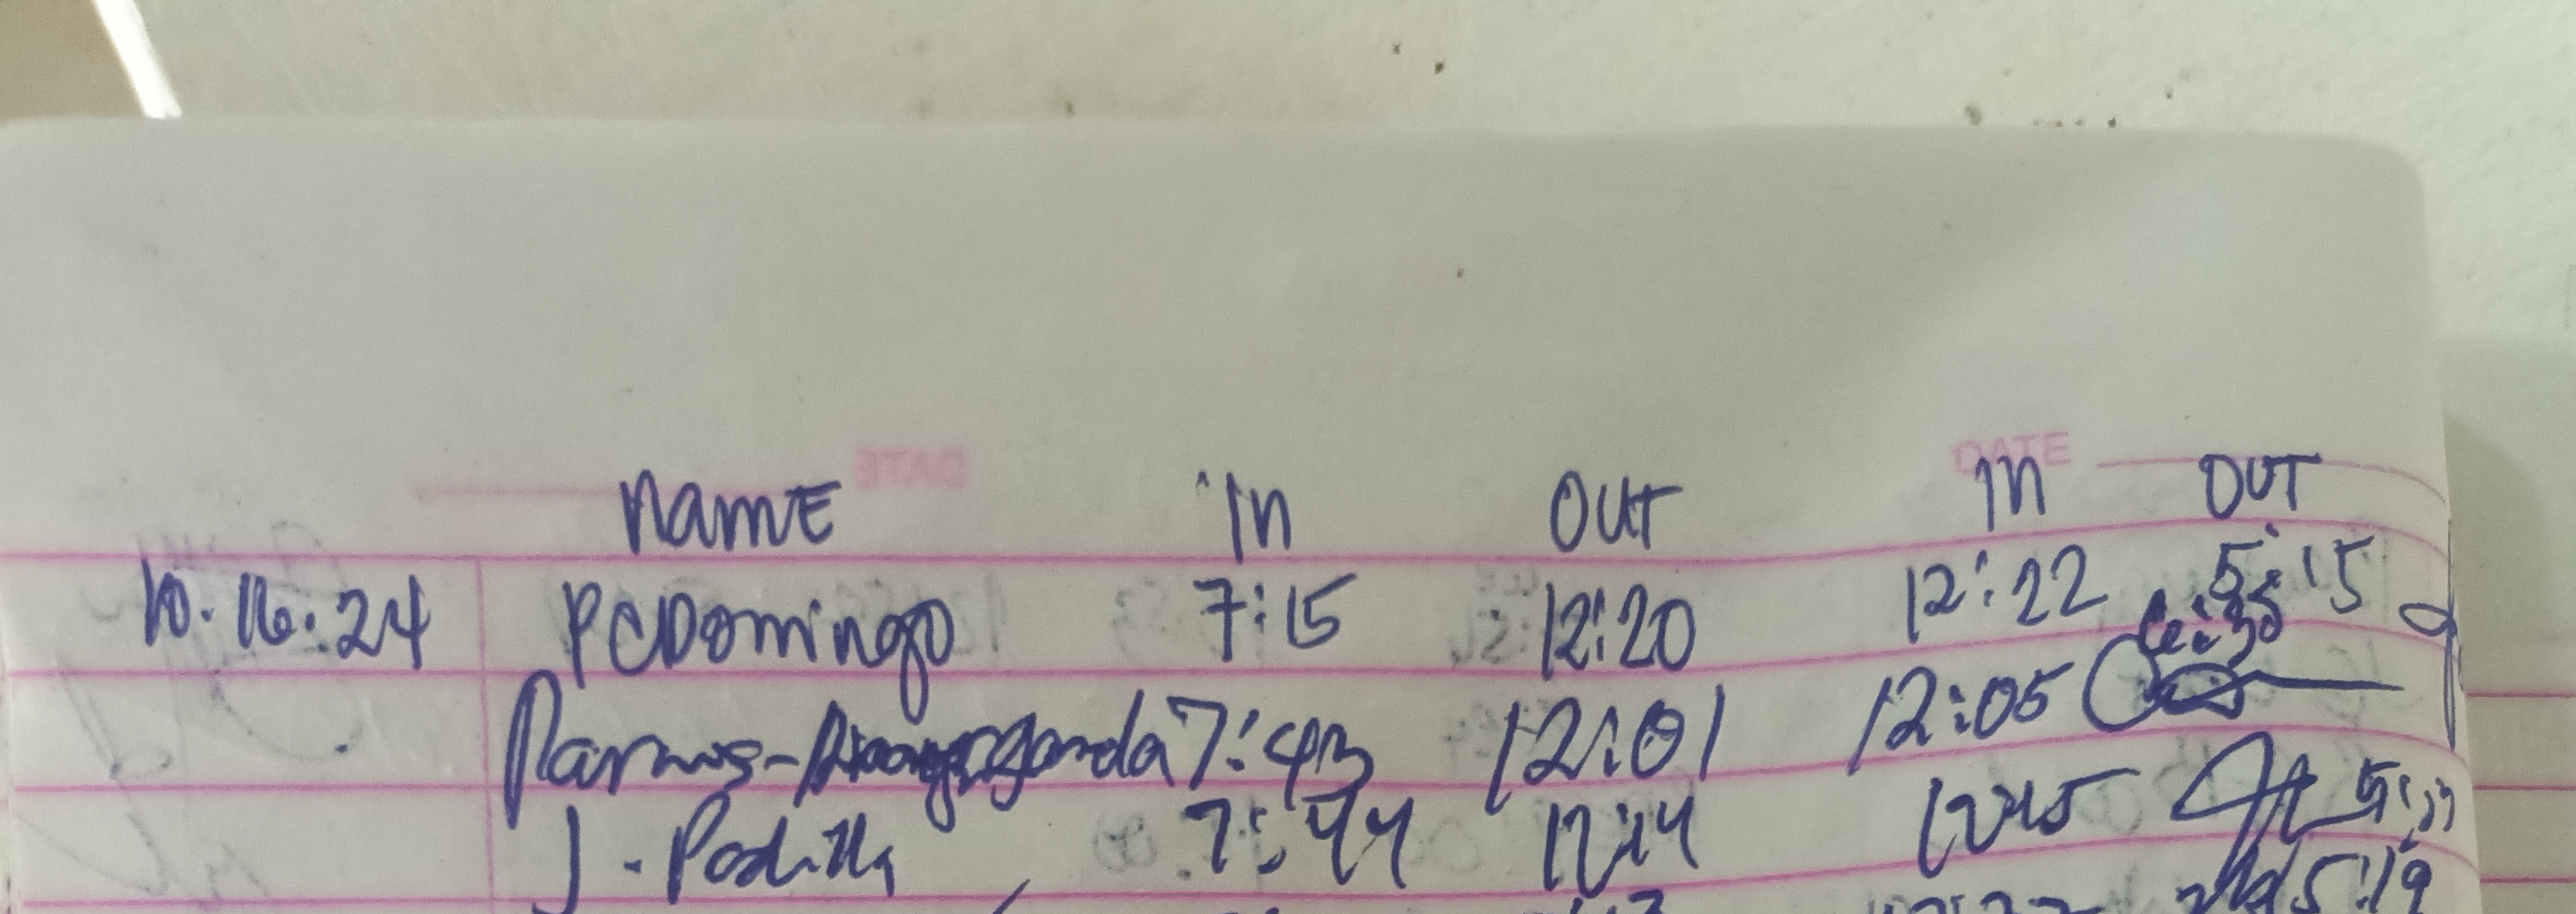 DATE
NAME IN OUT IN OUT
10.16.24 PCDomingo 7:15 12:20 12:22 5:15
7:43 12:01 12:05 6:35
J. Padilla 7:44 12:14 12:15
5:19